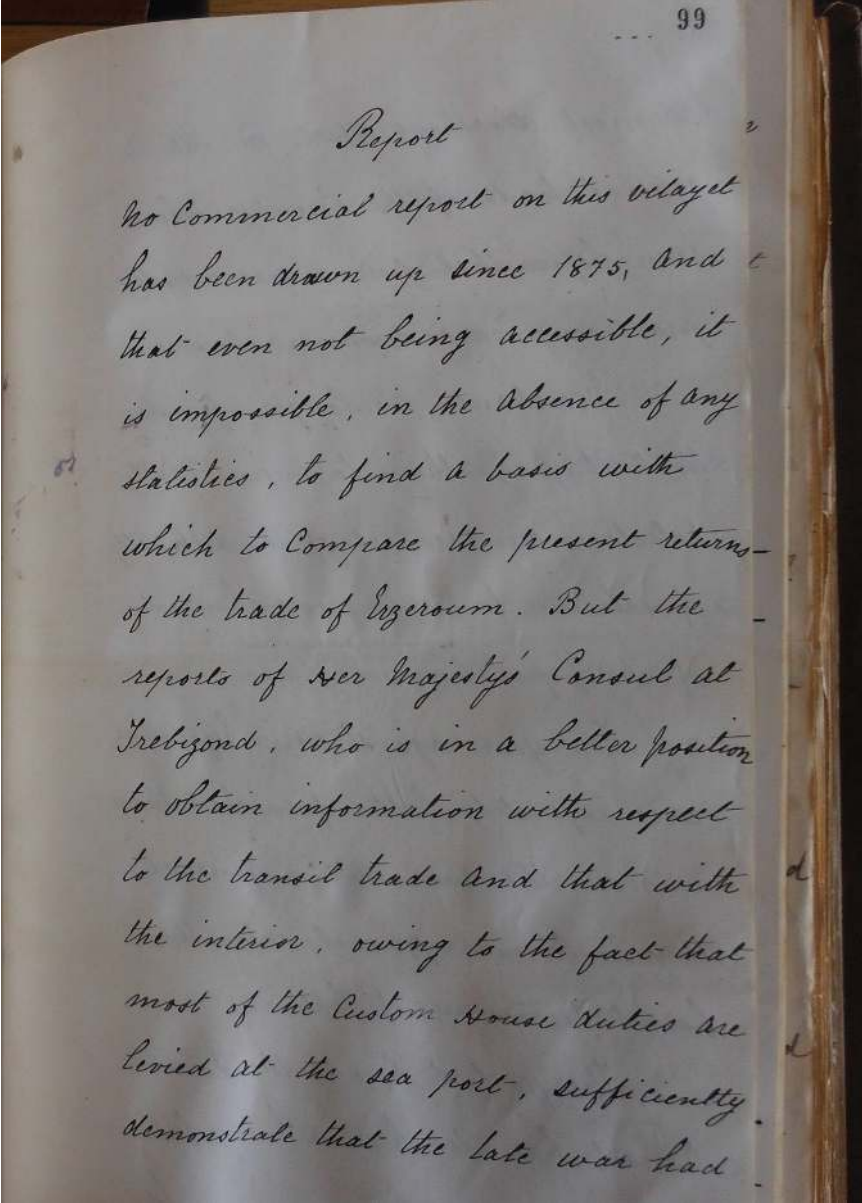 99
Report
No Commercial report on this vilayet
has been drawn up since 1875, and
that even not being accessible, it
is impossible, in the absence of any
statistics, to find a basis with
which to Compare the present returns
of the trade of Erzeroum. But the
reports of Her Majesty's Consul at
Trebizond, who is in a better position
to obtain information with respect
to the transit trade and that with
the interior, owing to the fact that
most of the Custom House duties are
levied at the sea port, sufficiently
demonstrate that the late war had